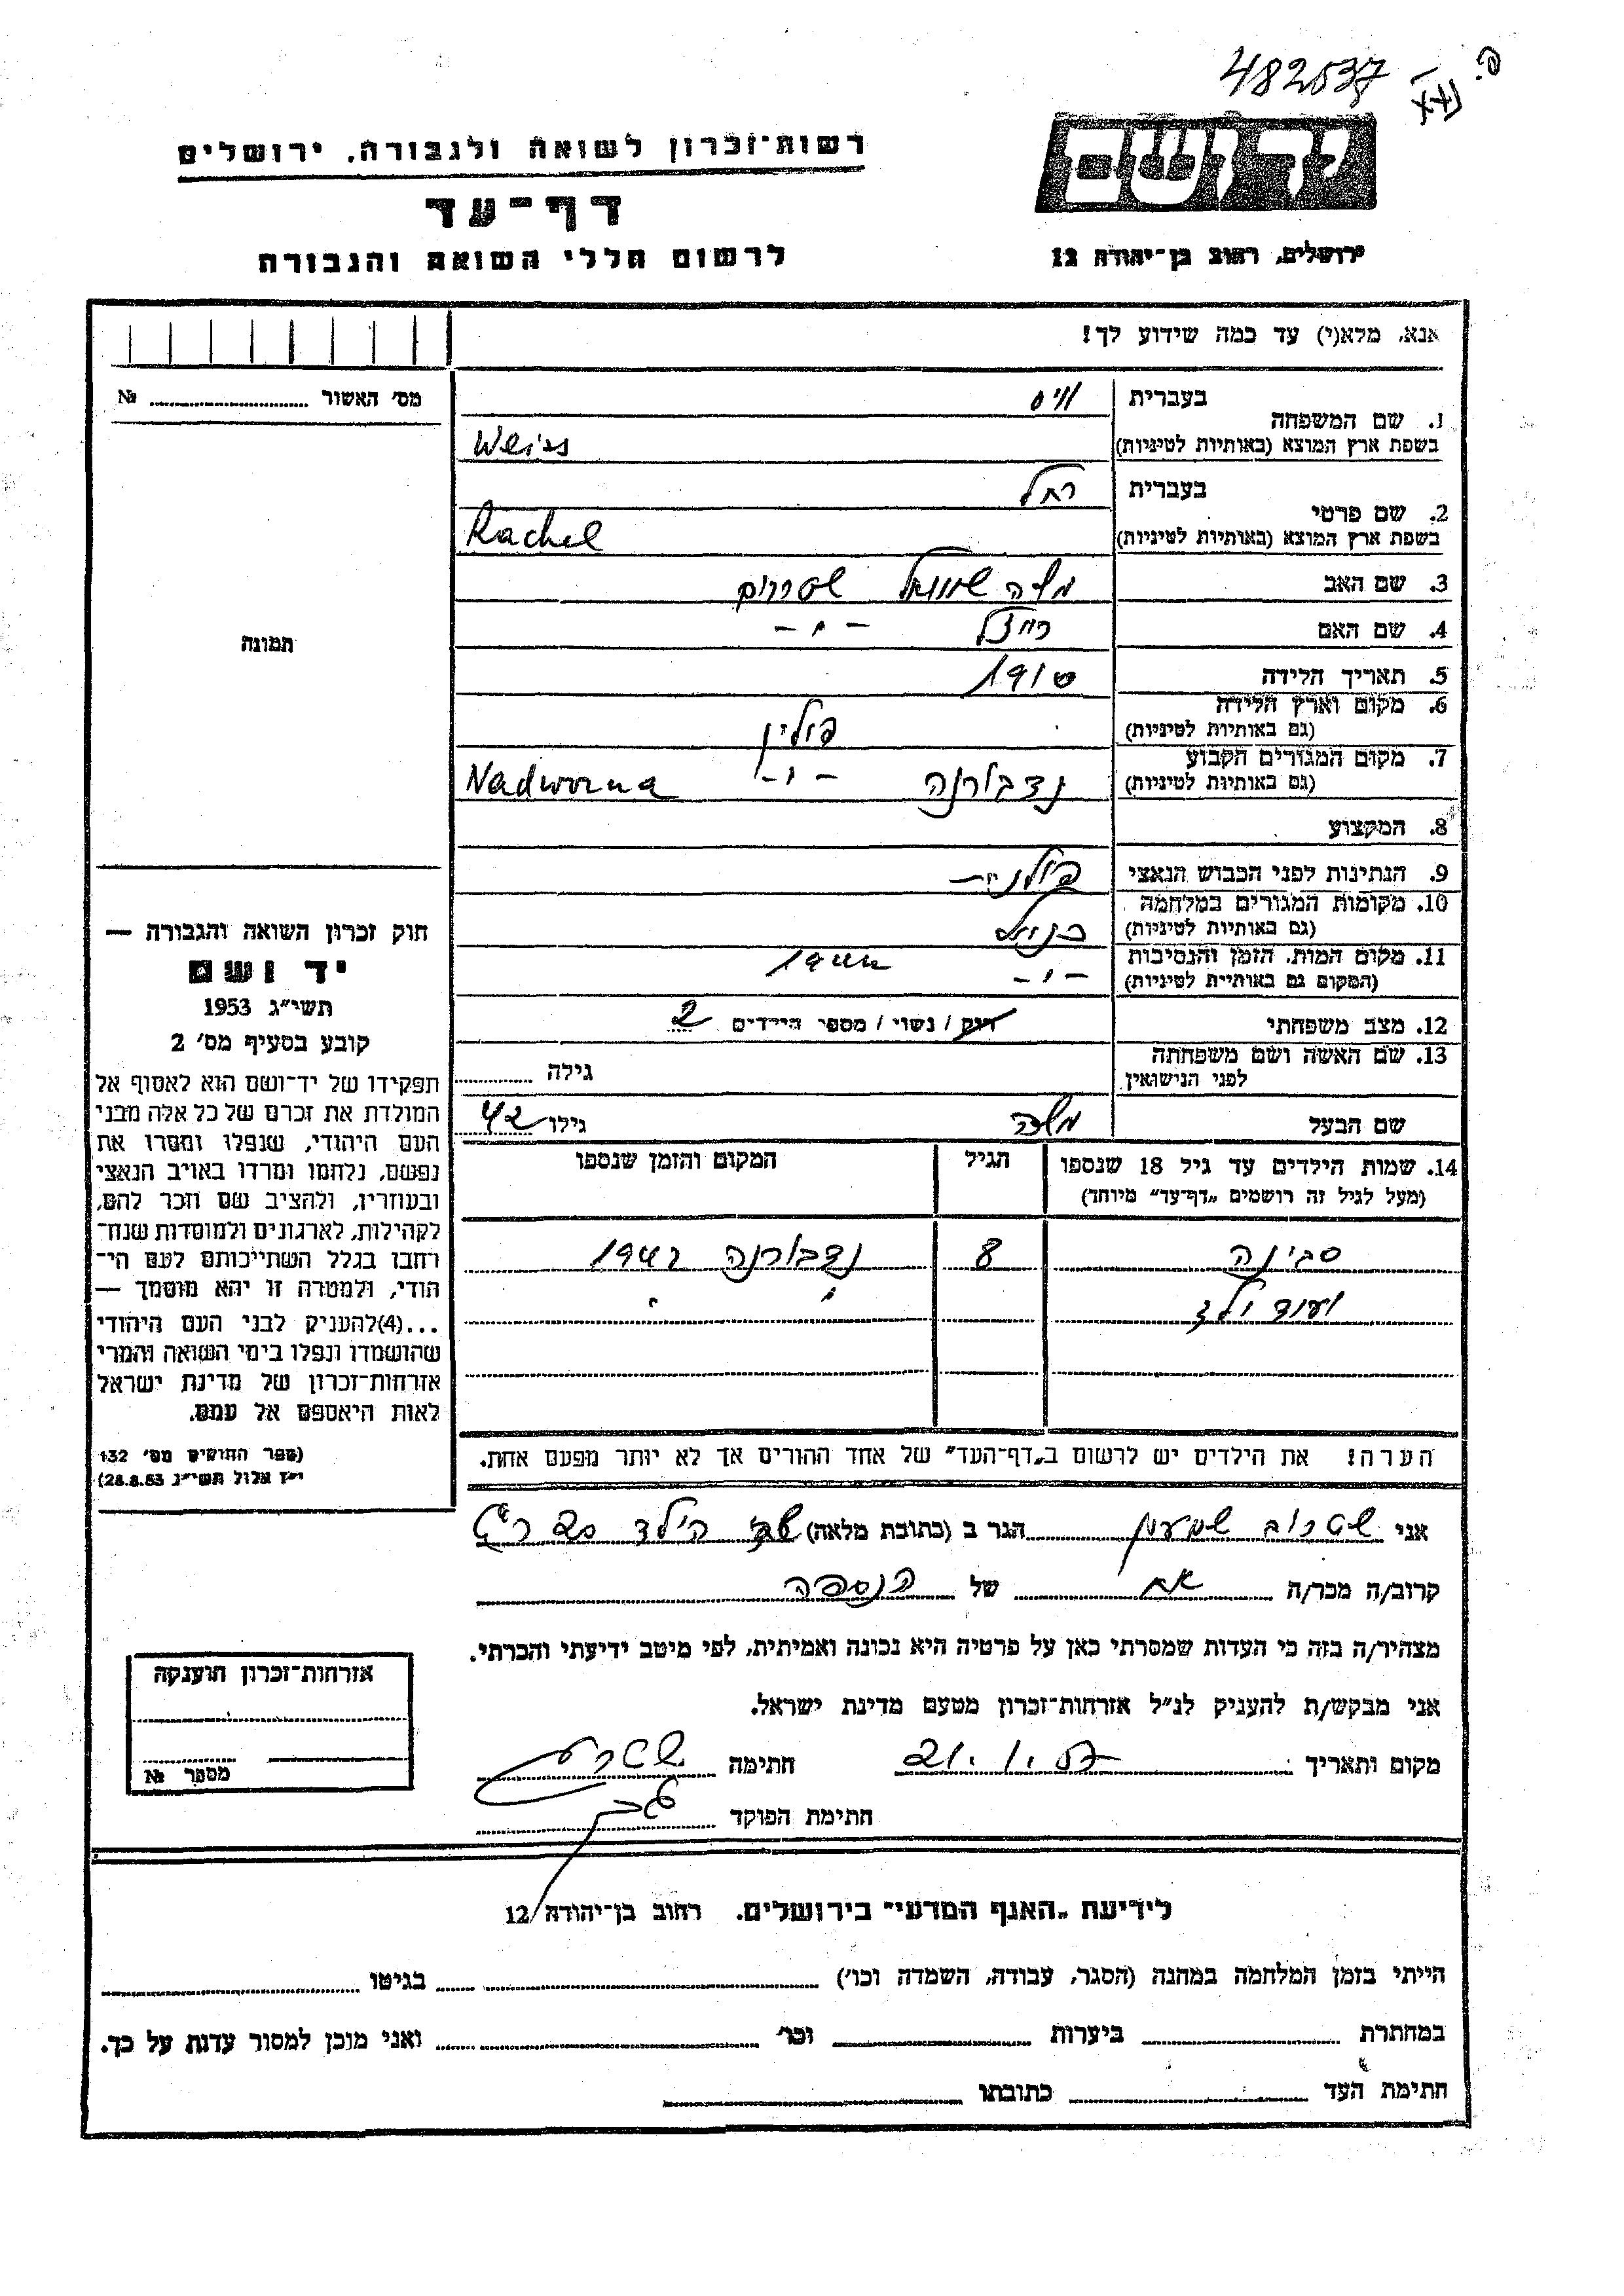 482537
רשות־זכרון לשואה ולגבורה, ירושלים
דף־עד
לרשום חללי השואה והגבורה
ירושלים, רחוב בן־יהודה 12
אנא, מלא(י) עד כמה שידוע לך!
מס׳ האשור № 
תמונה
חוק זכרון השואה והגבורה —
יד ושם
תשי״ג 1953
קובע בסעיף מס׳ 2
תפקידו של יד־ושם הוא לאסוף אל
המולדת את זכרם של כל אלה מבני
העם היהודי, שנפלו ומסרו את
נפשם, נלחמו ומרדו באויב הנאצי
ובעוזריו, ולהציב שם וזכר להם,
לקהילות, לארגונים ולמוסדות שנח־
רחבו בגלל השתייכותם לעם הי־
הודי, ולמטרה זו יהא מוסמך —
...(4)להעניק לבני העם היהודי
שהושמדו ונפלו בימי השואה והמרי
אזרחות־זכרון של מדינת ישראל
לאות היאספם אל עמם.
(ספר החוקים מס׳ 132
י״ז אלול תשי״ג 28.8.53)
1. שם המשפחה
בעברית וויס
בשפת ארץ המוצא (באותיות לטיניות) Weiss
2. שם פרטי
בעברית רחל
בשפת ארץ המוצא (באותיות לטיניות) Rachel
3. שם האב משה שמואל
4. שם האם רייזל — ״ —
5. תאריך הלידה 1910
6. מקום וארץ הלידה
(גם באותיות לטיניות) פולין
7. מקום המגורים הקבוע
(גם באותיות לטיניות) נדבורנה — ״ — Nadworna
8. המקצוע
9. הנתינות לפני הכבוש הנאצי פולנית
10. מקומות המגורים במלחמה
(גם באותיות לטיניות) כנ״ל
11. מקום המות, הזמן והנסיבות
(המקום גם באותיית לטיניות) — ״ —
12. מצב משפחתי רווק / נשוי / מספר הילדים 2
13. שם האשה ושם משפחתה
לפני הנישואין גילה
שם הבעל משה גילו 42
14. שמות הילדים עד גיל 18 שנספו הגיל המקום והזמן שנספו
(מעל לגיל זה רושמים „דף־עד״ מיוחד)
סבינה 8 נדבורנה
ועוד ילד ״ ״
הערה! את הילדים יש לרשום ב„דף־העד״ של אחד ההורים אך לא יותר מפעם אחת.
אני שטרוב שמעון הגר ב (כתובת מלאה)
קרוב/ה מכר/ה אח של הנספה
מצהיר/ה בזה כי העדות שמסרתי כאן על פרטיה היא נכונה ואמיתית, לפי מיטב ידיעתי והכרתי.
אני מבקש/ת להעניק לנ״ל אזרחות־זכרון מטעם מדינת ישראל.
מקום ותאריך חתימה
חתימת הפוקד
אזרחות־זכרון הוענקה
מספר №
לידיעת „האגף המדעי״ בירושלים, רחוב בן־יהודה 12
הייתי בזמן המלחמה במחנה (הסגר, עבודה, השמדה וכו׳) בגיטו
במחתרת ביערות וכו׳ ואני מוכן למסור עדות על כך.
חתימת העד כתובתו